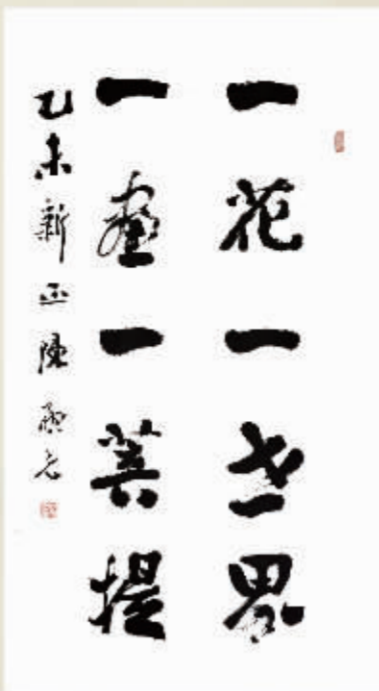 一花一世界
一畫一菩提
乙未新正陳